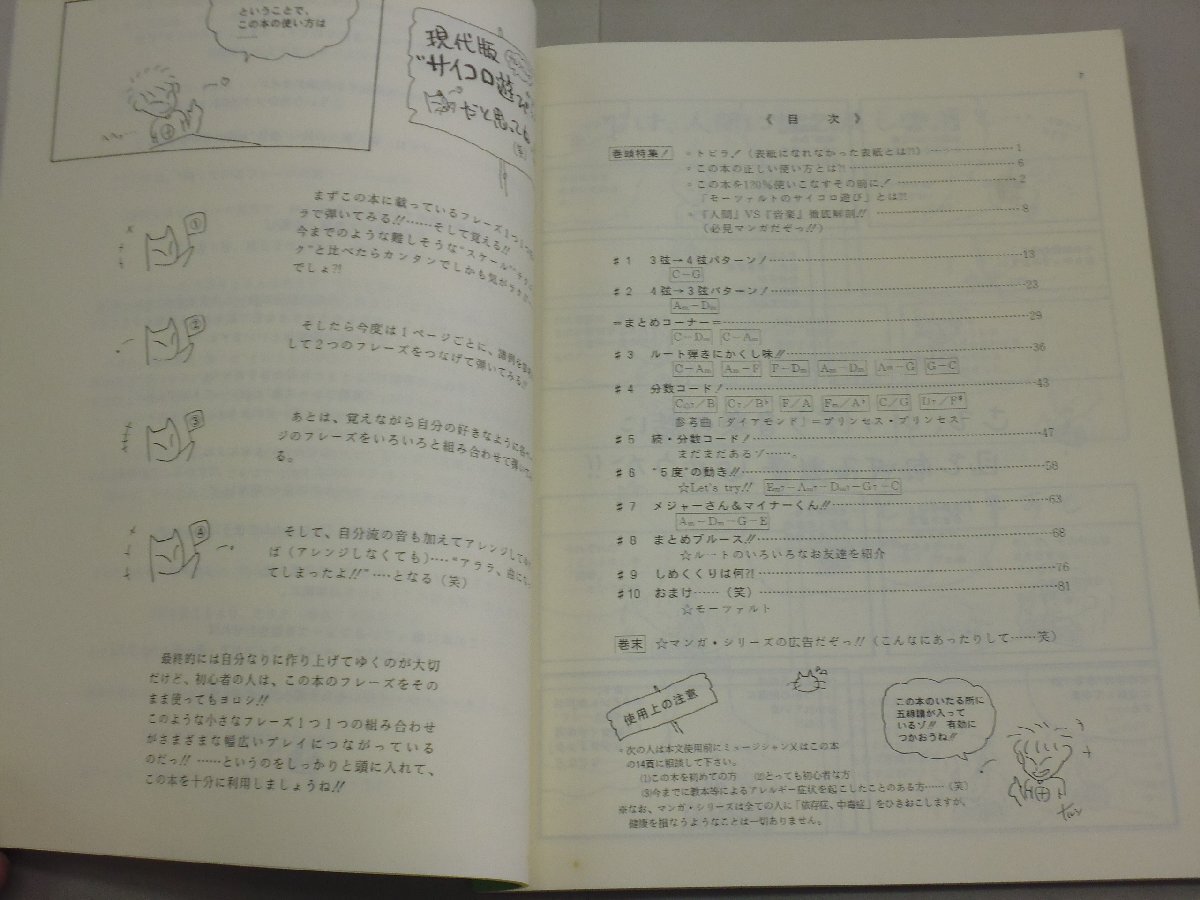 ということで、
この本の使い方は
……
現代版
"サイコロ遊び
だと思っても
(笑)
まずこの本に載っているフレーズ1つ1つ
ラで弾いてみる!!……そして覚える!!
今までのような難しそうな"スケール
ク"と比べたらカンタンでしかも気がラク
でしょ?!
①
そしたら今度は1ページごとに、譜例を
して2つのフレーズをつなげて弾いてみる!!
②
あとは、覚えながら自分の好きなように各ペー
ジのフレーズをいろいろと組み合わせて弾いて
る。
③
そして、自分流の音も加えてアレンジして
ば(アレンジしなくても)…"アララ、曲に
てしまったよ!!"…となる(笑)
④
最終的には自分なりに作り上げてゆくのが大切
だけど、初心者の人は、この本のフレーズをその
まま使ってもヨロシ!!
このような小さなフレーズ1つ1つの組み合わせ
がさまざまな幅広いプレイにつながっている
のだっ!! ……というのをしっかりと頭に入れて、
この本を十分に利用しましょうね!!
《目 次》
巻頭特集! ◦トビラ!(表紙になれなかった表紙とは?!)……1
◦この本の正しい使い方とは?!……6
◦この本を120%使いこなすその前に!……2
「モーツァルトのサイコロ遊び」とは?!
◦『人間』VS『音楽』徹底解剖!!……8
(必見マンガだぞっ!!)
♯1 3弦→4弦パターン!……13
C−G
♯2 4弦→3弦パターン!……23
Am−Dm
=まとめコーナー=……29
C−Dm C−Am
♯3 ルート弾きにかくし味!!……36
C−Am Am−F F−Dm Am−Dm Am−G G−C
♯4 分数コード!……43
C△7/B C7/B♭ F/A Fm/A♭ C/G D7/F♯
参考曲「ダイアモンド」=プリンセス・プリンセス−
♯5 続・分数コード!……47
まだまだあるゾ……。
♯6 "5度"の動き!!……58
☆Let's try!! Em7−Am7−Dm7−G7−C
♯7 メジャーさん&マイナーくん!!……63
Am−Dm−G−E
♯8 まとめブルース!!……68
☆ルートのいろいろなお友達を紹介
♯9 しめくくりは何?!……76
♯10 おまけ……(笑)……81
☆モーツァルト
巻末 ☆マンガ・シリーズの広告だぞっ!!(こんなにあったりして……笑)
使用上の注意
◦次の人は本文使用前にミュージシャン又はこの本
の14頁に相談して下さい。
(1)この本を初めての方 (2)とっても初心者な方
(3)今までに教本等によるアレルギー症状を起こしたことのある方……(笑)
※なお、マンガ・シリーズは全ての人に「依存症、中毒症」をひきおこしますが、
健康を損なうようなことは一切ありません。
この本のいたる所に
五線譜が入って
いるゾ!! 有効に
つかおうね!!